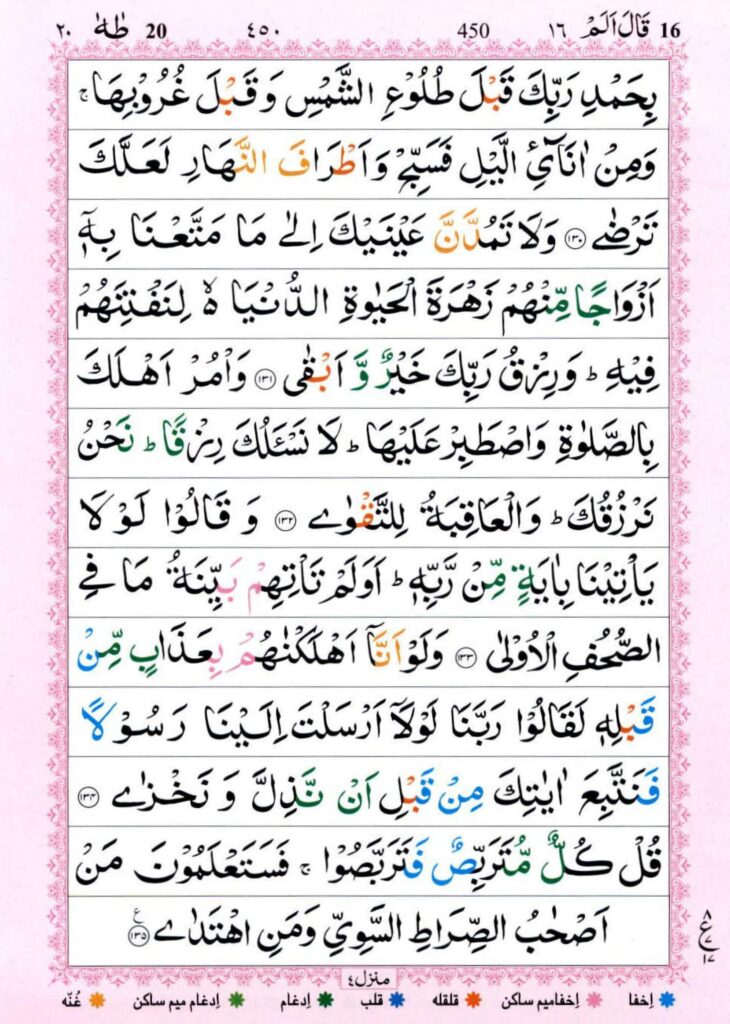 16 قَالَ اَلَمْ ١٦ 450 ٤٥٠ 20 طٰهٰ ٢٠
بِحَمْدِ رَبِّكَ قَبْلَ طُلُوْعِ الشَّمْسِ وَ قَبْلَ غُرُوْبِهَا ۚ
وَمِنْ اٰنَآئِ الَّيْلِ فَسَبِّحْ وَاَطْرَافَ النَّهَارِ لَعَلَّكَ
تَرْضٰى ﴿۱۳۰﴾ وَلَا تَمُدَّنَّ عَيْنَيْكَ اِلٰى مَا مَتَّعْنَا بِهٖۤ
اَزْوَاجًا مِّنْهُمْ زَهْرَةَ الْحَيٰوةِ الدُّنْيَا ۙ لِنَفْتِنَهُمْ
فِيْهِ ؕ وَرِزْقُ رَبِّكَ خَيْرٌ وَّ اَبْقٰى ﴿۱۳۱﴾ وَاْمُرْ اَهْلَكَ
بِالصَّلٰوةِ وَاصْطَبِرْ عَلَيْهَا ؕ لَا نَسْـَٔلُكَ رِزْقًا ؕ نَحْنُ
نَرْزُقُكَ ؕ وَالْعَاقِبَةُ لِلتَّقْوٰى ﴿۱۳۲﴾ وَ قَالُوْا لَوْلَا
يَاْتِيْنَا بِاٰيَةٍ مِّنْ رَّبِّهٖ ؕ اَوَلَمْ تَاْتِهِمْ بَيِّنَةُ مَا فِى
الصُّحُفِ الْاُوْلٰى ﴿۱۳۳﴾ وَلَوْ اَنَّاۤ اَهْلَكْنٰهُمْ بِعَذَابٍ مِّنْ
قَبْلِهٖ لَقَالُوْا رَبَّنَا لَوْلَاۤ اَرْسَلْتَ اِلَيْنَا رَسُوْلًا
فَنَتَّبِعَ اٰيٰتِكَ مِنْ قَبْلِ اَنْ نَّذِلَّ وَ نَخْزٰى ﴿۱۳۴﴾
قُلْ كُلٌّ مُّتَرَبِّصٌ فَتَرَبَّصُوْا ۚ فَسَتَعْلَمُوْنَ مَنْ
اَصْحٰبُ الصِّرَاطِ السَّوِيِّ وَمَنِ اهْتَدٰى ﴿۱۳۵﴾ ع
۸
ع
۷
۱۷
منزل ٤
اِخفا اِخفامیم ساکن قلقله قلب اِدغام اِدغام میم ساکن غُنّه